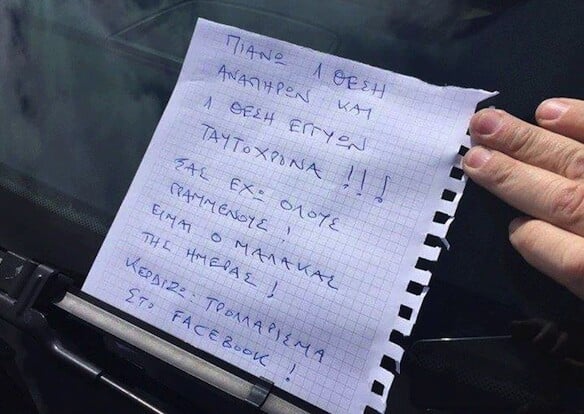 ΠΙΑΝΩ 1 ΘΕΣΗ
ΑΝΑΠΗΡΩΝ ΚΑΙ
1 ΘΕΣΗ ΕΓΓΥΩΝ
ΤΑΥΤΟΧΡΟΝΑ !!!
ΣΑΣ ΕΧΩ ΟΛΟΥΣ
ΓΡΑΜΜΕΝΟΥΣ !
ΕΙΜΑΙ Ο ΜΑΛΑΚΑΣ
ΤΗΣ ΗΜΕΡΑΣ !
ΚΕΡΔΙΖΩ: ΤΡΟΛΛΑΡΙΣΜΑ
ΣΤΟ FACEBOOK !